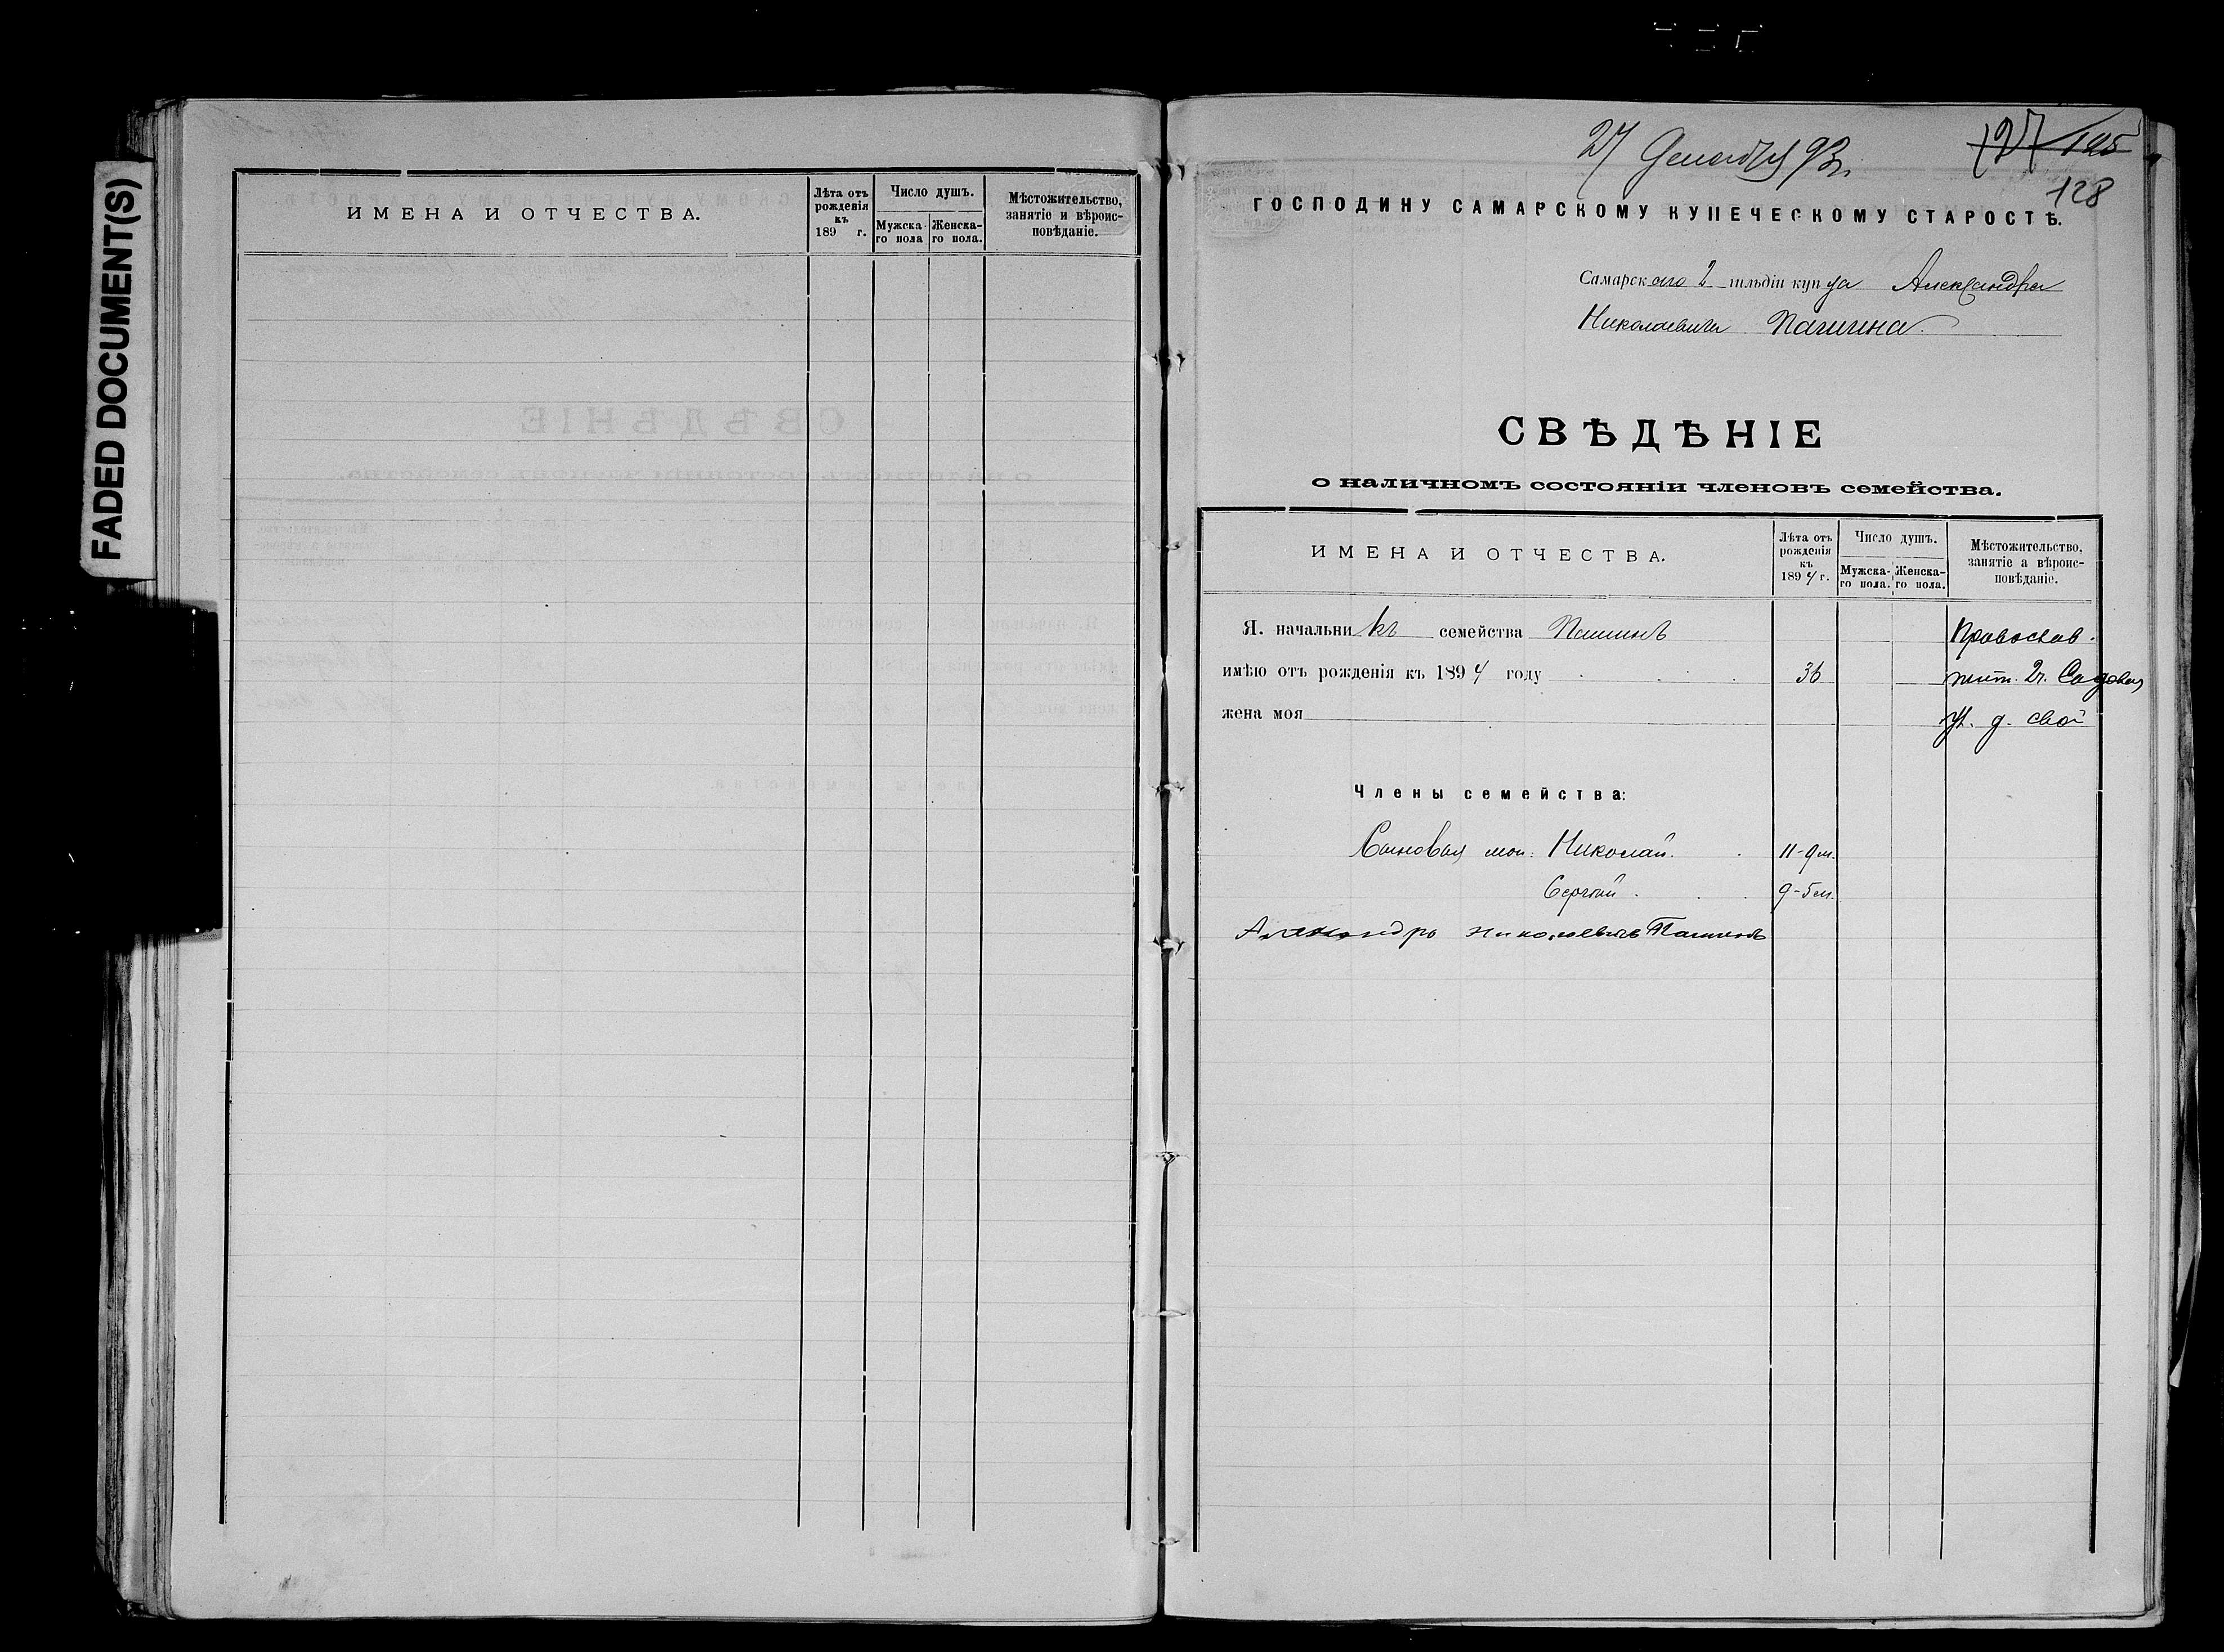 FADED DOCUMENT(S)
ИМЕНА И ОТЧЕСТВА.
Лѣта отъ рожденія къ 189 г.
Число душъ.
Мужска-го пола
Женска-го пола.
Мѣстожительство, занятіе и вѣроис-повѣданіе.
27 Декабря 93 г.
127 125
128
ГОСПОДИНУ САМАРСКОМУ КУПЕЧЕСКОМУ СТАРОСТѢ.
Самарскаго 2 гильдіи купца Александра
Николаевича Пашина.
СВѢДѢНІЕ
о наличномъ состояніи членовъ семейства.
ИМЕНА И ОТЧЕСТВА.
Лѣта отъ рожденія къ 1894 г.
Число душъ.
Мужска-го пола.
Женска-го пола.
Мѣстожительство, занятіе а вѣроис-повѣданіе.
Я. начальникъ семейства Пашинъ Православ.
имѣю отъ рожденія къ 1894 году 36 жит. 2 ч. Садовая
жена моя ул. д. свой
Члены семейства:
Сыновья мои: Николай. 11-9 м.
Сергѣй. 9-5 м.
Александръ Николаевичъ Пашинъ